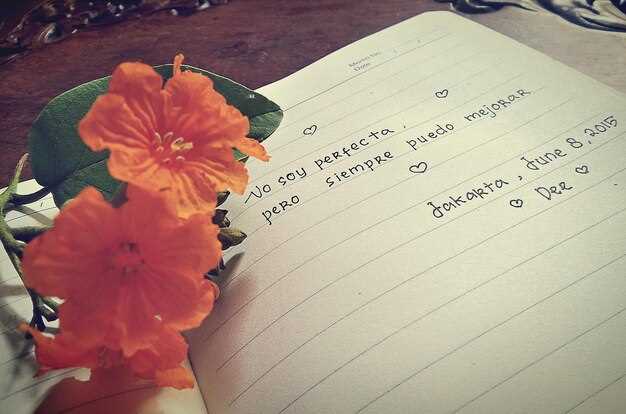 Memo No.
Date
No soy perfecta,
pero siempre puedo mejorar
Jakarta, June 8, 2015
Dee